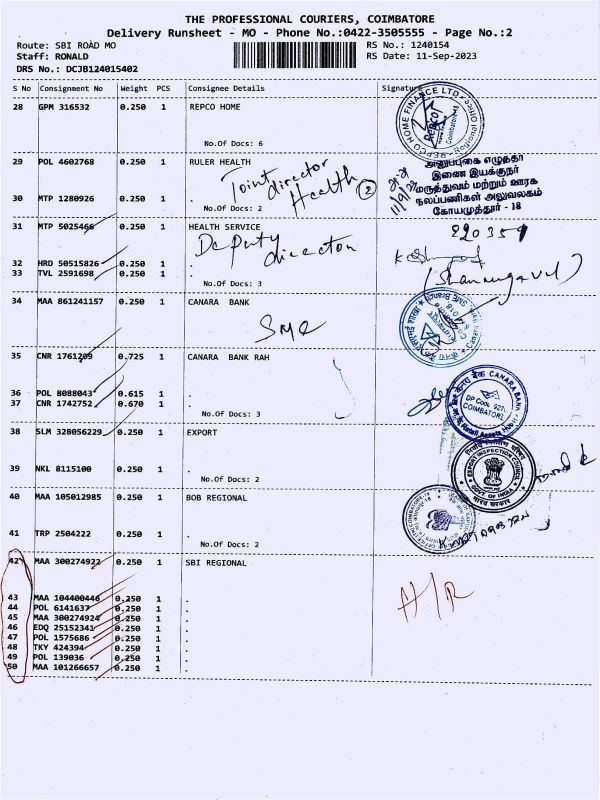 THE PROFESSIONAL COURIERS, COIMBATORE
Delivery Runsheet - MO - Phone No.:0422-3505555 - Page No.:2
Route: SBI ROAD MO
RS No.: 1240154
Staff: RONALD
RS Date: 11-Sep-2023
DRS No.: DCJB124015402
S No Consignment No Weight PCS Consignee Details Signature
28 GPM 316532 0.250 1 REPCO HOME
No.Of Docs: 6
REPCO HOME FINANCE LTD. Regional Office
29 POL 4602768 0.250 1 RULER HEALTH
Joint director Health 2
30 MTP 1280926 0.250 1 .
No.Of Docs: 2
11/9/
அனுப்புகை எழுத்தர்
இணை இயக்குநர்
மருத்துவம் மற்றும் ஊரக
நலப்பணிகள் அலுவலகம்
கோயமுத்தூர் - 18
31 MTP 5025466 0.250 1 HEALTH SERVICE
Deputy director
220359
32 HRD 50515826 0.250 1 .
33 TVL 2591698 0.250 1 .
No.Of Docs: 3
(Shanmugavel)
34 MAA 861241157 0.250 1 CANARA BANK
SME
35 CNR 1761209 0.725 1 CANARA BANK RAH
36 POL 8088043 0.615 1 .
37 CNR 1742752 0.670 1 .
No.Of Docs: 3
CANARA BANK
DP Code
COIMBATORE
Retail Assets Hub
38 SLM 328056229 0.250 1 EXPORT
39 NKL 8115100 0.250 1 .
No.Of Docs: 2
EXPORT INSPECTION COUNCIL
GOVT. OF INDIA
भारत सरकार
40 MAA 105012985 0.250 1 BOB REGIONAL
41 TRP 2504222 0.250 1 .
No.Of Docs: 2
42 MAA 300274922 0.250 1 SBI REGIONAL
43 MAA 104400446 0.250 1 .
44 POL 6141637 0.250 1 .
45 MAA 300274924 0.250 1 .
46 EDQ 25152341 0.250 1 .
47 POL 1575686 0.250 1 .
48 TKY 424394 0.250 1 .
49 POL 139036 0.250 1 .
50 MAA 101266657 0.250 1 .
A/R